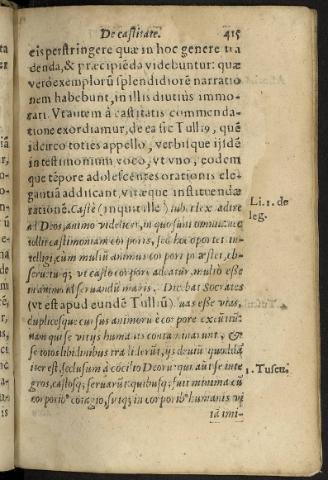 De castitate. 415
eis perstringere quæ in hoc genere tra
denda, & præcipiẽda videbuntur: quæ
verò exemplorũ splendidiorẽ narratio
nem habebunt, in illis diutius immo-
gari. Vt autem à castitatis commenda-
tione exordiamur, de ea sic Tullis, quẽ
idcirco toties appello, verbisque ijsdẽ
in testimonium voco, vt vno, eodem
que tẽpore adolescẽtes orationis ele-
gantiã addiscant, vitæque instituendæ
rationẽ. Castè (inquit ille) iubet lex adire
ad Deos, animo videlicet, in quo sunt omnia: nec
tollit castimoniam corporis, sed hoc oportet in-
telligi, cum multũ animus corpori præstet, ob-
seruetur; vt casto corpore adeatur, multo esse
in animo id seruandũ magis. Dicebat Socrates
(vt est apud eundẽ Tulliũ) duas esse vias,
duplicesque cursus animorũ è corpore excũtiũ:
nam qui se vitijs humanis contaminarunt, &
se totos libidinibus tradiderũt, ijs deuiũ quoddã
iter est, seclusum à cõcilio Deorũ: qui aũt se inte
gros, castosq; seruarũt: quibusq; fuit minima cũ
corporib⁹ cõtagio, suntq; in corporib⁹ humanis vi
tã imi-
Li. 2. de
leg.
1. Tuscu.